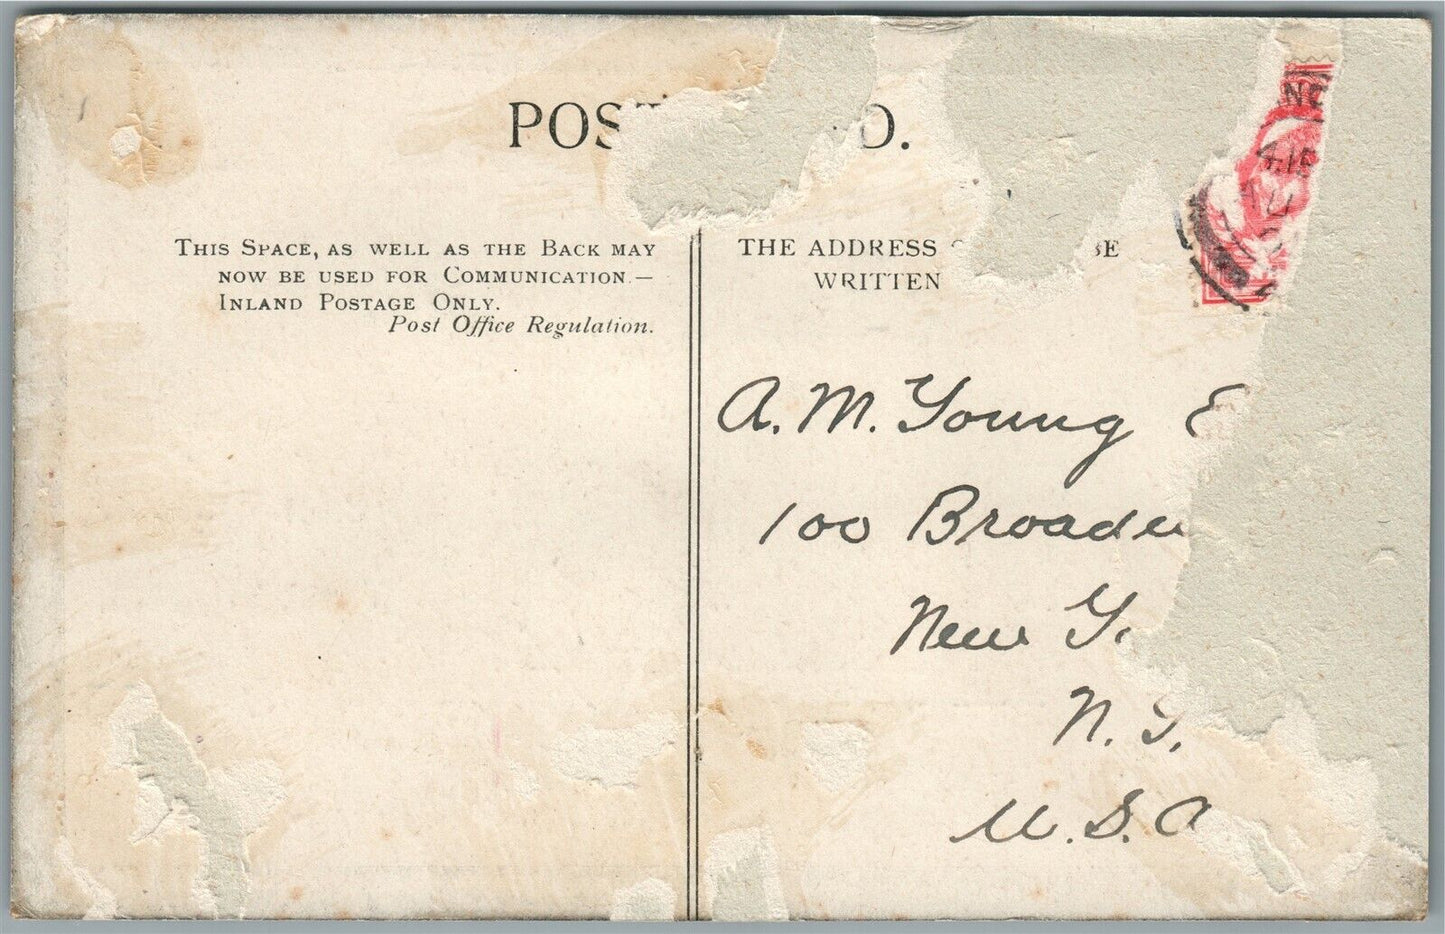 POST D.
THIS SPACE, AS WELL AS THE BACK MAY
NOW BE USED FOR COMMUNICATION.—
INLAND POSTAGE ONLY.
Post Office Regulation.
THE ADDRESS BE
WRITTEN
4.15
A. M. Young E
100 Broadw
New Y.
N. Y.
U. S. A